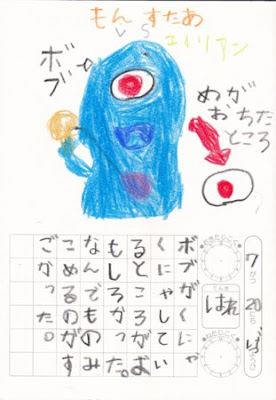 もんすたあ
VS
エイリアン
ボブ
めが
おちた
ところ
7
がつ
20
にち
てんき
はれ
ボブがくにゃ
くにゃしてい
るところがお
もしろかった。
なんでものみ
こめるのがす
ごかった。